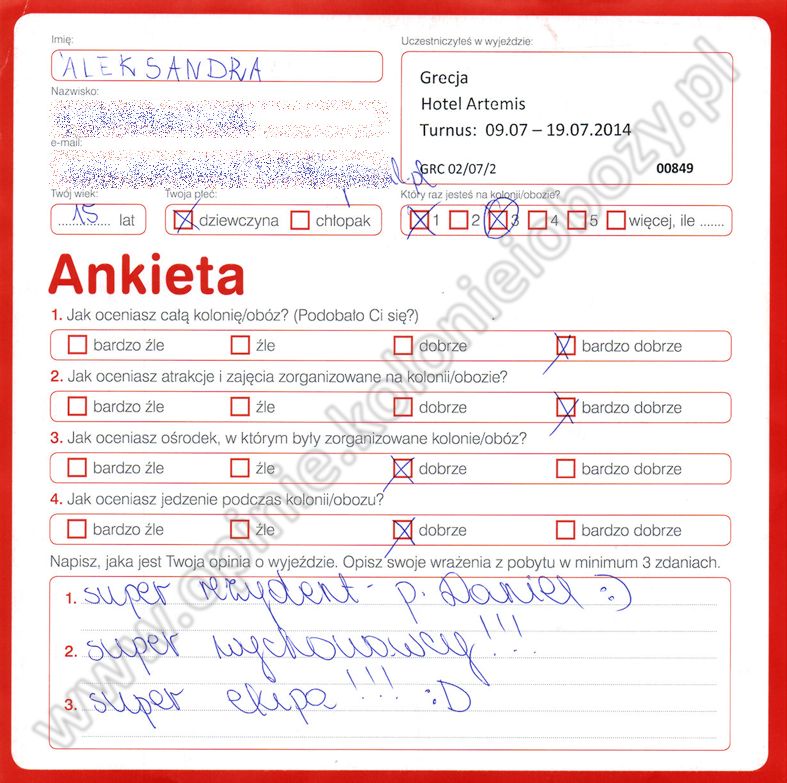 Imię:
ALEKSANDRA
Nazwisko:
e-mail:
Uczestniczyłeś w wyjeździe:
Grecja
Hotel Artemis
Turnus: 09.07 – 19.07.2014
GRC 02/07/2 00849
Twój wiek:
15 lat
Twoja płeć:
dziewczyna chłopak
Który raz jesteś na kolonii/obozie?
1 2 3 4 5 więcej, ile .......
Ankieta
1. Jak oceniasz całą kolonię/obóz? (Podobało Ci się?)
bardzo źle źle dobrze bardzo dobrze
2. Jak oceniasz atrakcje i zajęcia zorganizowane na kolonii/obozie?
bardzo źle źle dobrze bardzo dobrze
3. Jak oceniasz ośrodek, w którym były zorganizowane kolonie/obóz?
bardzo źle źle dobrze bardzo dobrze
4. Jak oceniasz jedzenie podczas kolonii/obozu?
bardzo źle źle dobrze bardzo dobrze
Napisz, jaka jest Twoja opinia o wyjeździe. Opisz swoje wrażenia z pobytu w minimum 3 zdaniach.
1. super rezydent - p. Daniel :)
2. super wychowawcy!!!
3. super ekipa!!! :D
www.opinie.kolonieiobozy.pl